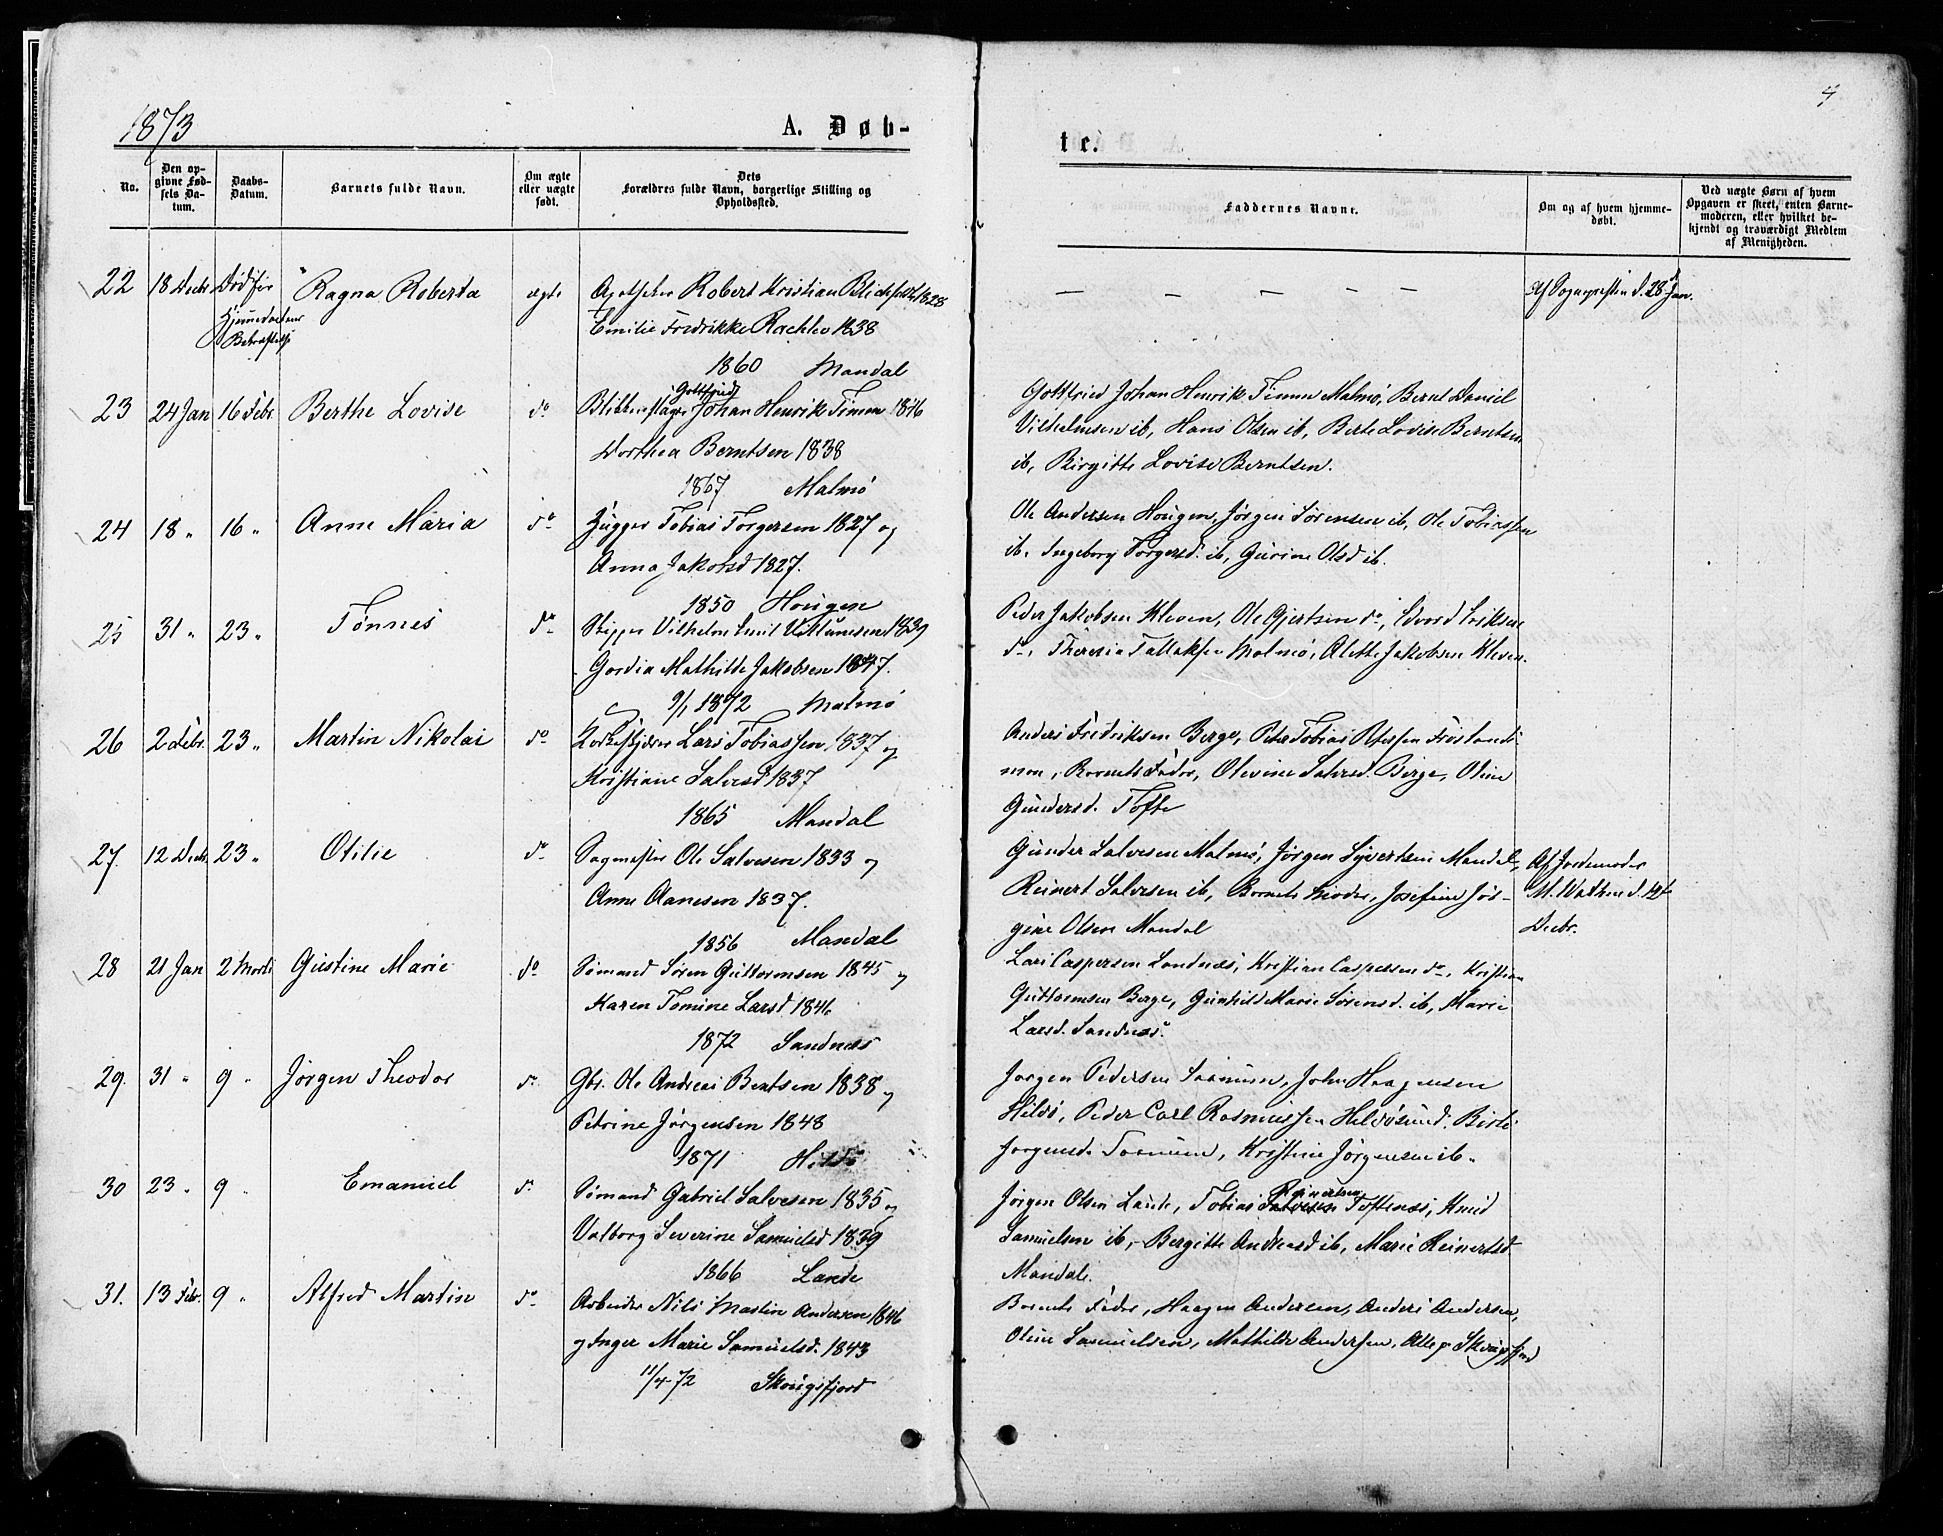 1873
A. Døb-
No.
Den opgivne Fødsels Datum.
Daabs-Datum.
Barnets fulde Navn.
Om ægte eller uægte født.
Dets Forældres fulde Navn, borgerlige Stilling og Opholdssted.
22 18 Decbr Død før Ragna Roberta ægte Apotheker Robert Kristian 1828
Hjemmedaabens
Bekræftelse
Emilie Fredrikke 1838
1860 Mandal
Gottfried
23 24 Jan 16 Febr Berthe Lovise do Blikkenslager Johan Henrik Timm 1846
Dorthea Berntsen 1838
1867 Malmø
24 18 " 16 " Anne Maria do Hugger Tobias Torgersen 1827 og
Anna Jakobsd 1827.
1850 Hougen
25 31 " 23 " Tønnes do Skipper Vilhelm Emil 1839
Gordia Mathilde Jakobsen 1847.
9/1 1872 Malmø
26 2 Febr. 23 " Martin Nikolai do Lars Tobiassen 1837 og
Kristiane Salvesd 1837
1865 Mandal
27. 12 Decbr. 23 " Otilie do Sagmester Ole Salvesen 1833 og
Anne Aanesen 1837.
1856 Mandal
28 21 Jan 2 Marts Gustine Marie do Sømand Sören Guttormsen 1845 og
Karen Tomine Larsd 1846
1872 Sandnæs
29. 31 " 9 " Jørgen Theodor do Gbr. Ole Andreas Berntsen 1838 og
Petrine Jørgensen 1848
1871 Hillø
30 23 " 9 " Emanuel do Sømand Gabriel Salvesen 1835 og
Valborg Severine Samuelsd 1839
1866 Lande
31. 13 Febr. 9 " Alfred Martin do Arbeider Nils Martin Andersen 1846
og Inger Marie Samuelsd. 1843
11/4-72 Skougsfjord
4
te.
Faddernes Navne.
Om og af hvem hjemmedøbt.
Ved uægte Børn af hvem Opgaven er skeet, enten Barnemoderen, eller hvilket bekjendt og troværdigt Medlem af Menigheden.
— — — — — Af Sognepresten d. 28 Jan.
Gottfried Johan Henrik Timm Malmø, Bernt Daniel
Vilhelmsen ib, Hans Olsen ib, Berte Lovise Berntsen
ib, Birgitte Lovise Berntsen.
Ole Andersen Hougen, Jørgen Sørensen ib, Ole Tobiassen
ib, Ingeborg Torgersd. ib, Gurine Olsd ib.
Peder Jakobsen Kleven, Ole Gjertsen do, Edvard Eriksen
do, Theresia Tallaksen Malmø, Alette Jakobsen Kleven.
Anders Fredriksen Berge, Peter Tobias Petersen
Barnets Fader, Olevine Salvesd. Berge, Oline
Gundersd. Tofte
Gunder Salvesen Malmø, Jørgen Syvertsen Mandal, Af Jordemoder
Reinert Salvesen ib, Barnets Moder, Josefine Jør- M. Wathne d. 12te
gine Olsen Mandal Decbr.
Lars Caspersen Landnæs, Kristian Caspersen do, Kristian
Guttormsen Berge, Gunhild Marie Sørensd. ib, Marie
Larsd. Sandnæs.
Jørgen Pedersen Saanum, John Haagensen
Hillø, Peder Carl Rasmussen Hilløsund. Birte
Jørgensd. Saanum, Kristine Jørgensen ib.
Reinertsen
Jørgen Olsen Lande, Tobias Salvesen Toftenæs, Knud
Samuelsen ib, Bergitte Andreasd ib, Marie Reinertsd
Mandal.
Barnets Fader, Haagen Andersen, Anders Andersen,
Oline Samuelsen, Mathilde Andersen, Alle p. Skougsfjord